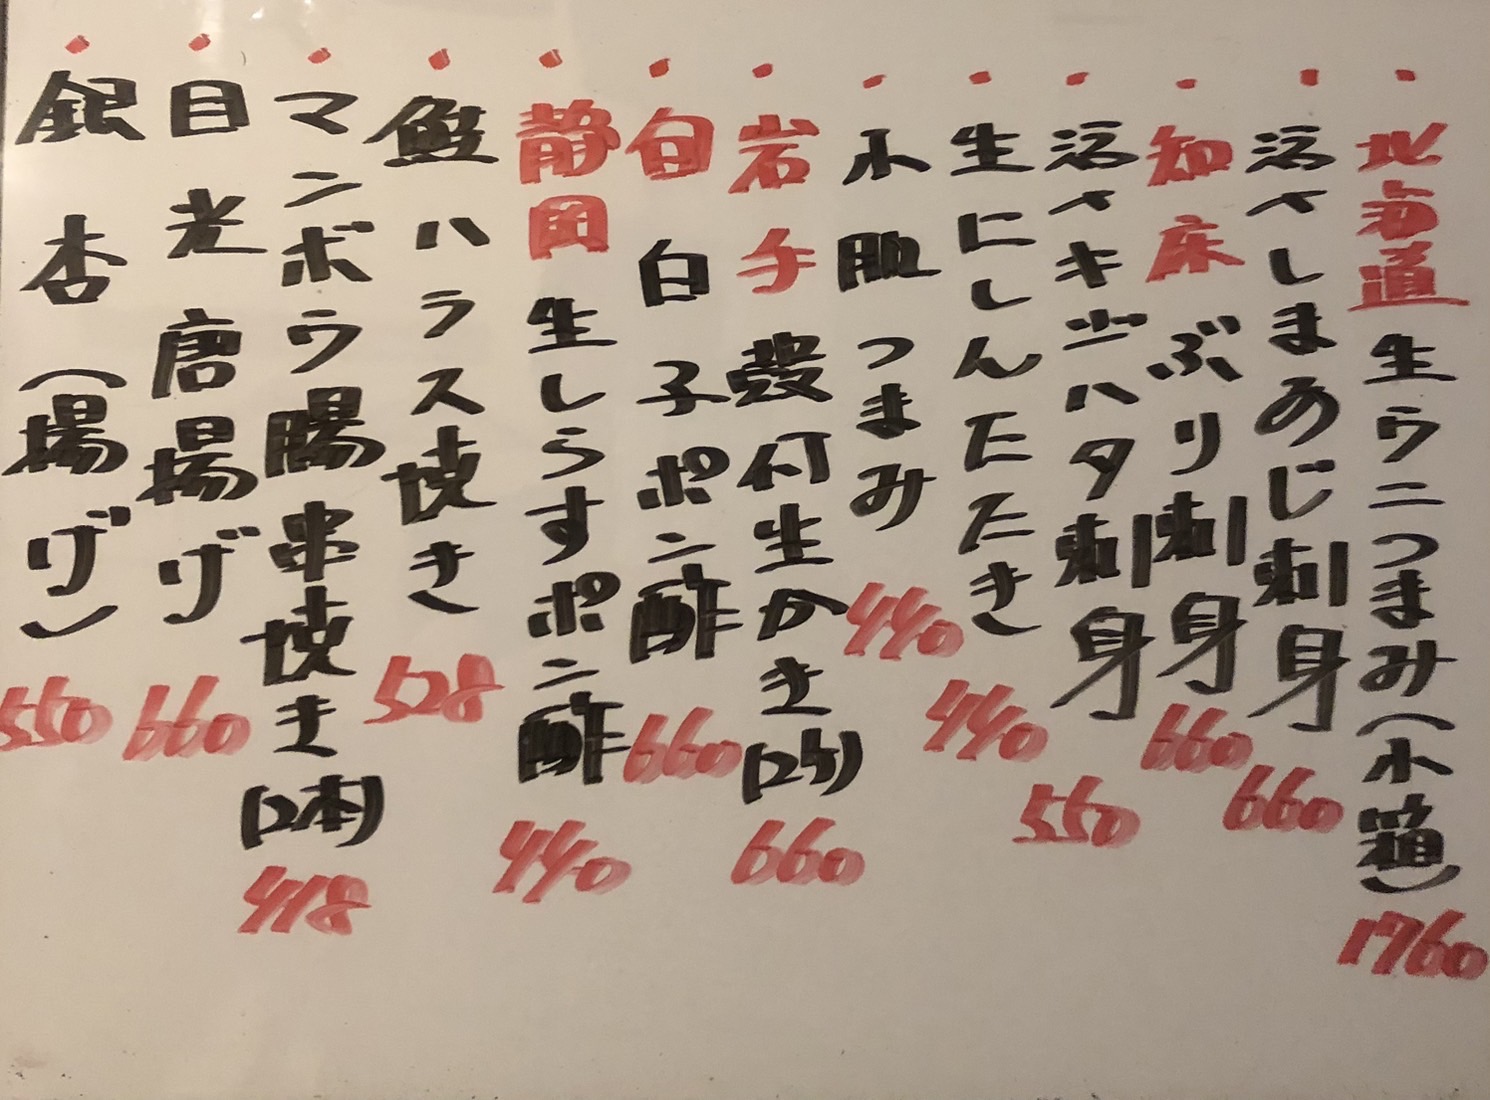 ・北海道 生ウニつまみ(小箱) 1760
・活〆しまあじ刺身 660
・知床 ぶり刺身 660
・活〆キジハタ刺身 550
・生にしんたたき 440
・小肌 つまみ 440
・岩手 殻付生かき(2ケ) 660
・旬 白子ポン酢 660
・静岡 生しらすポン酢 440
・鮭ハラス焼き 528
・マンボウ腸串焼き(2本) 418
・目光唐揚げ 660
・銀杏(揚げ) 550